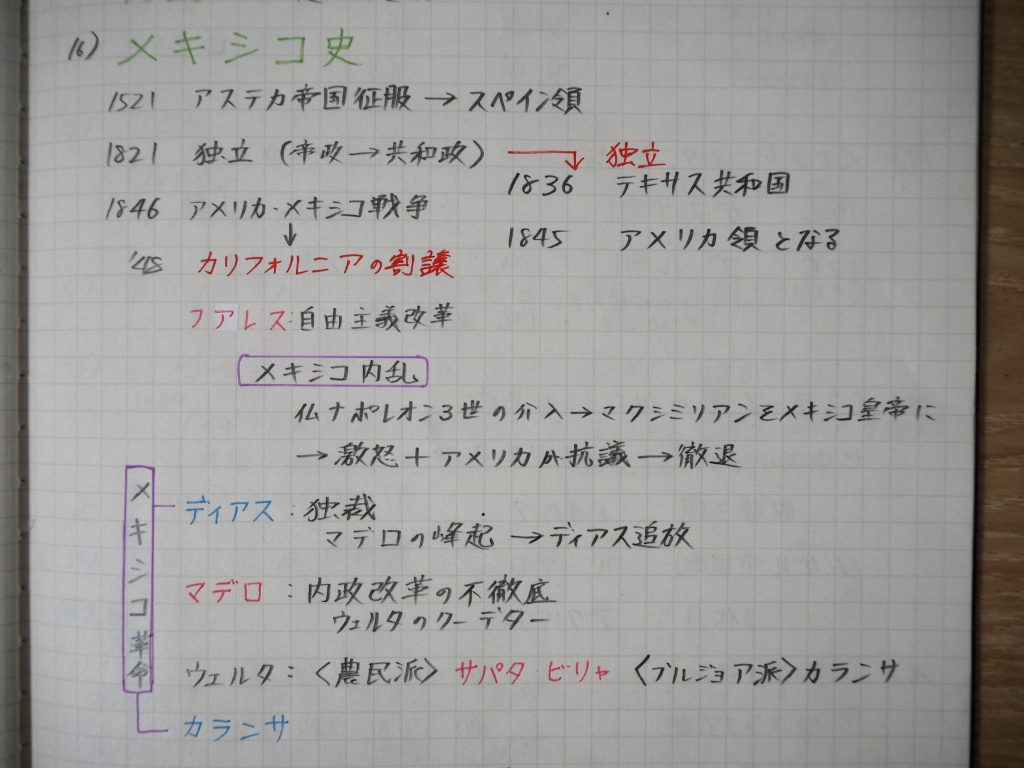 16) メキシコ史
1521 アステカ帝国征服→スペイン領
1821 独立(帝政→共和政)
独立
1836 テキサス共和国
1845 アメリカ領となる
1846 アメリカ・メキシコ戦争
↓
'48 カリフォルニアの割譲
フアレス:自由主義改革
メキシコ内乱
仏ナポレオン3世の介入→マクシミリアンをメキシコ皇帝に
→激怒+アメリカが抗議→徹退
メキシコ革命
ディアス:独裁
マデロの峰起→ディアス追放
マデロ:内政改革の不徹底
ウェルタのクーデター
ウェルタ:〈農民派〉サパタ ビリャ 〈ブルジョア派〉カランサ
カランサ